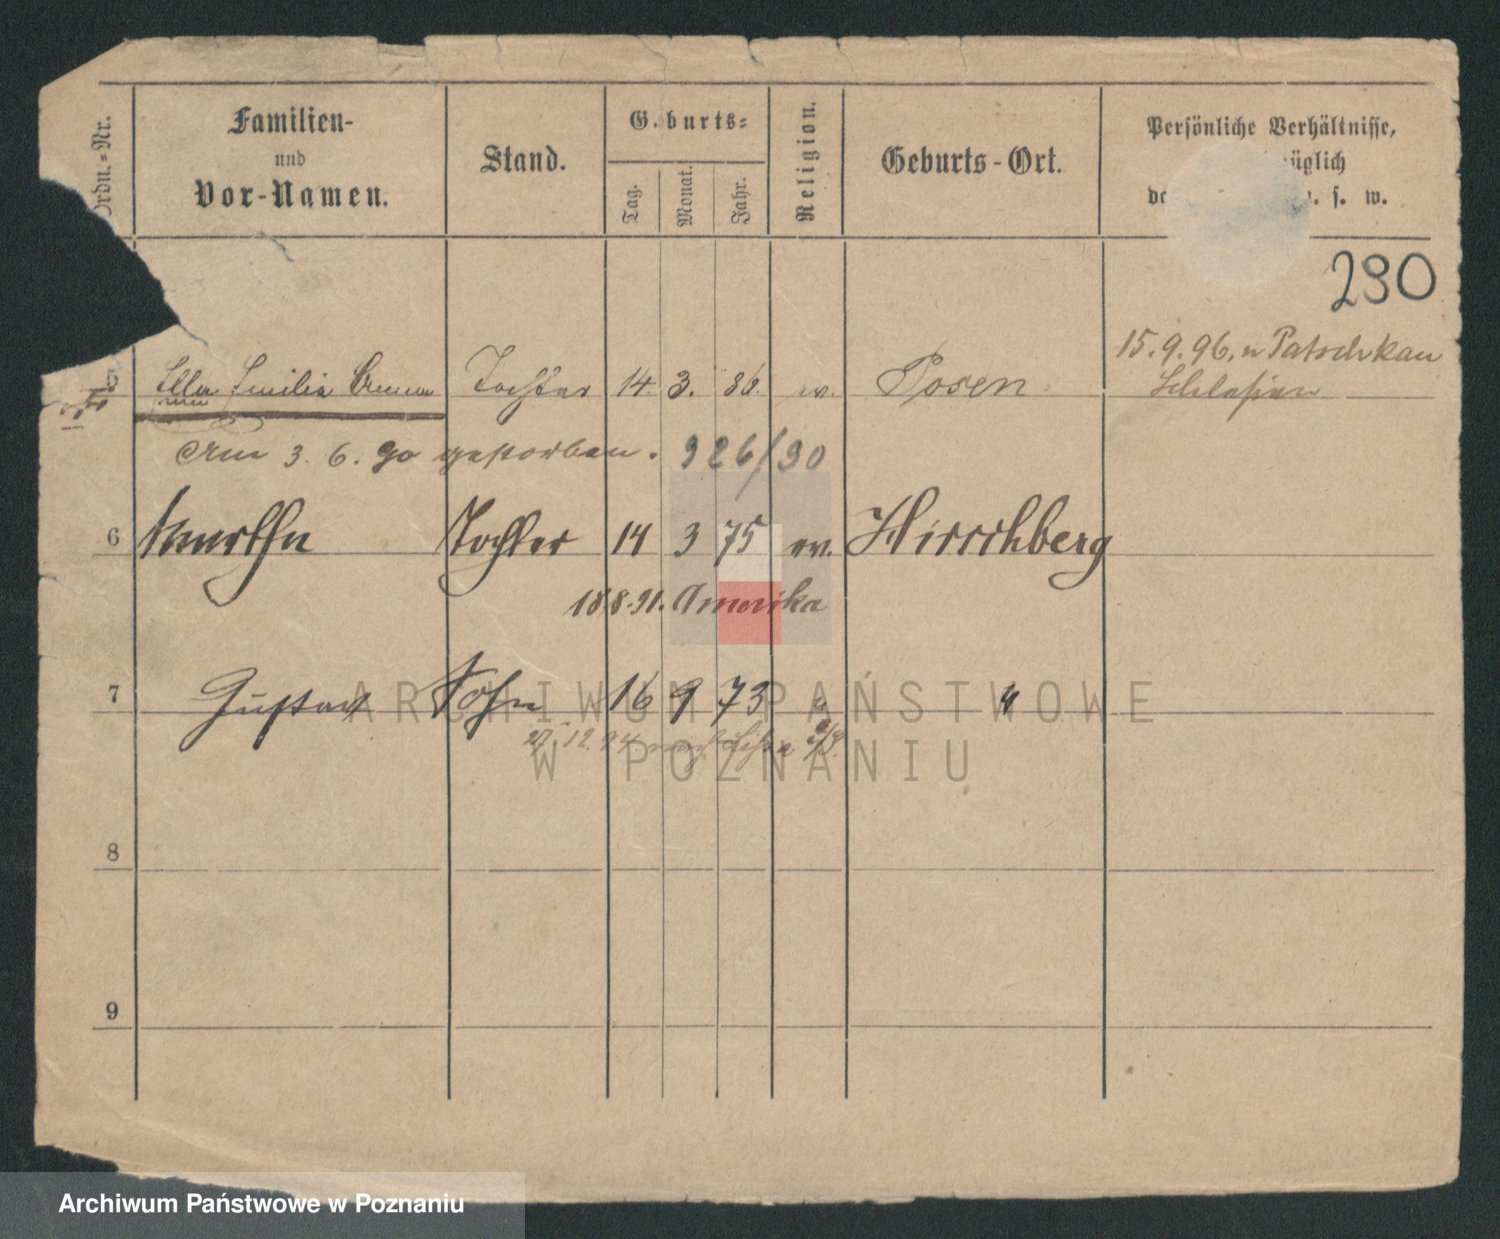 Ordn.-Nr.
Familien-
und
Vor-Namen.
Stand.
Geburts-
Tag.
Monat.
Jahr.
Religion.
Geburts-Ort.
Persönliche Verhältnisse,
u. s. w.
290
15.9.96. n Patschkau
Schlesien
5 Ella Emilie Emma Tochter 14. 3. 86. ev. Posen
Am 3. 6. 90 gestorben. 926/90
6 Martha Tochter 14 3 75 ev. Hirschberg
18 8. 91. Amerika
7 Gustav Sohn 16 9 73 " "
27. 12. 94 nach
8
9
ARCHIWUM PAŃSTWOWE
W POZNANIU
Archiwum Państwowe w Poznaniu